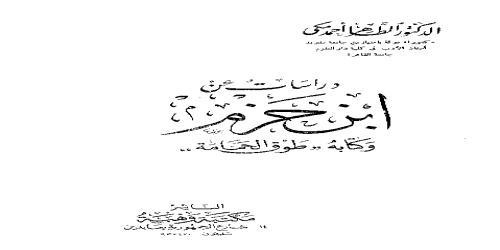 الدكتور الطاهر أحمد مكى
دكتوراه دولة بامتياز من جامعة مدريد
أستاذ الأدب فى كلية دار العلوم
جامعة القاهرة
دراسات عن
ابن حزم
وكتابه "طوق الحمامة"
الناشر
مكتبة وهبة
١٤ شارع الجمهورية بعابدين
تليفون